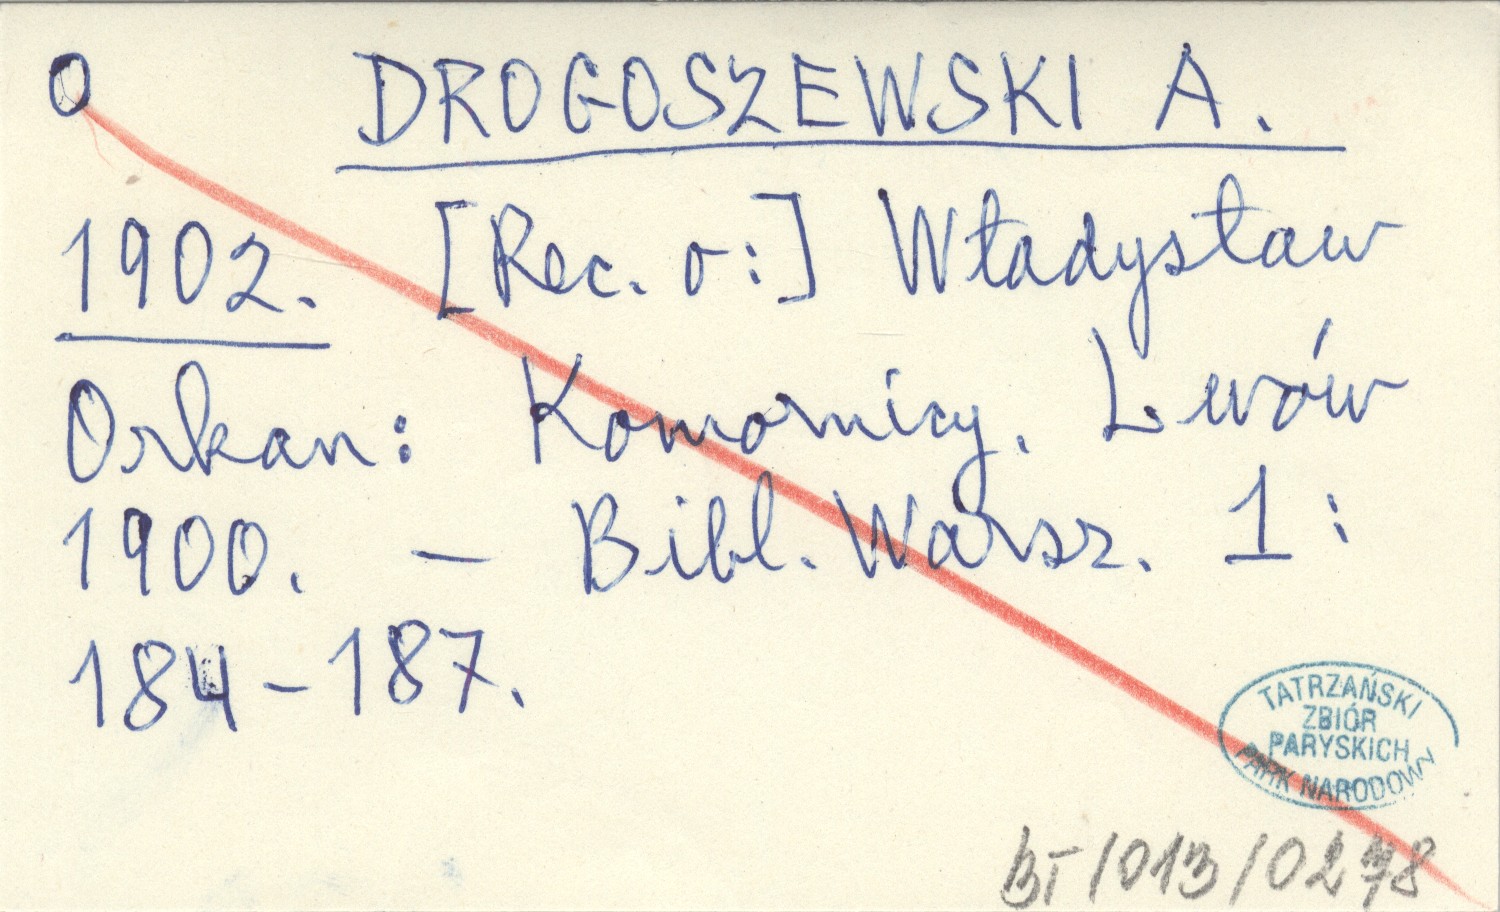 O DROGOSZEWSKI A.
1902. [Rec. o:] Władysław
Orkan: Komornicy. Lwów
1900. — Bibl. Warsz. 1:
184-187.
TATRZAŃSKI
ZBIÓR
PARYSKICH
PARK NARODOWY
BT/013/0278